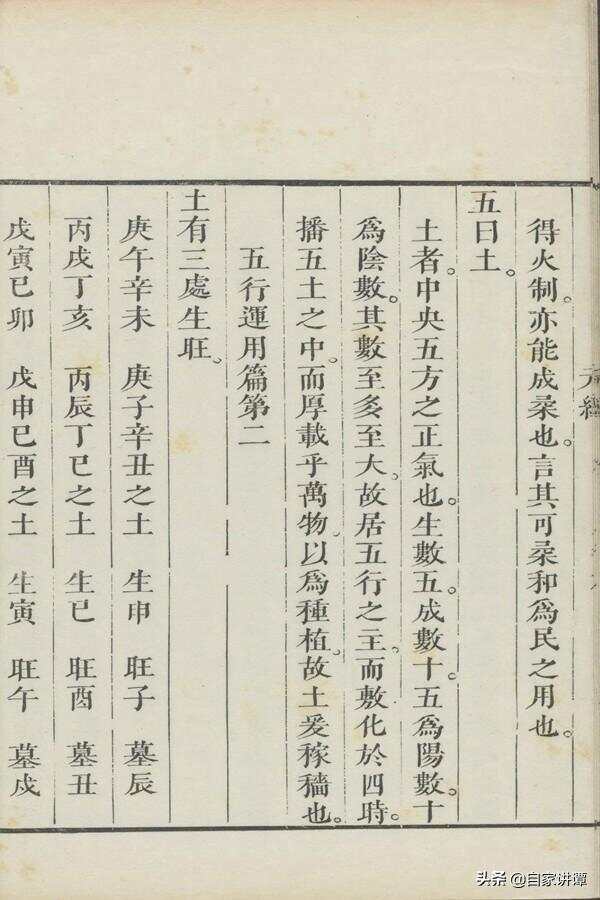 得火制。亦能成桒也。言其可桒和為民之用也。
五曰土。
土者。中央五方之正氣也。生數五。成數十。五為陽數。十
為陰數。其數至多至大。故居五行之主。而敷化於四時。
播五土之中。而厚載乎萬物。以為種植。故土爰稼穡也。
五行運用篇第二
土有三處生旺。
庚午辛未 庚子辛丑之土 生申 旺子 墓辰
丙戌丁亥 丙辰丁巳之土 生巳 旺酉 墓丑
戊寅己卯 戊申己酉之土 生寅 旺午 墓戌
头条 @自家讲谭